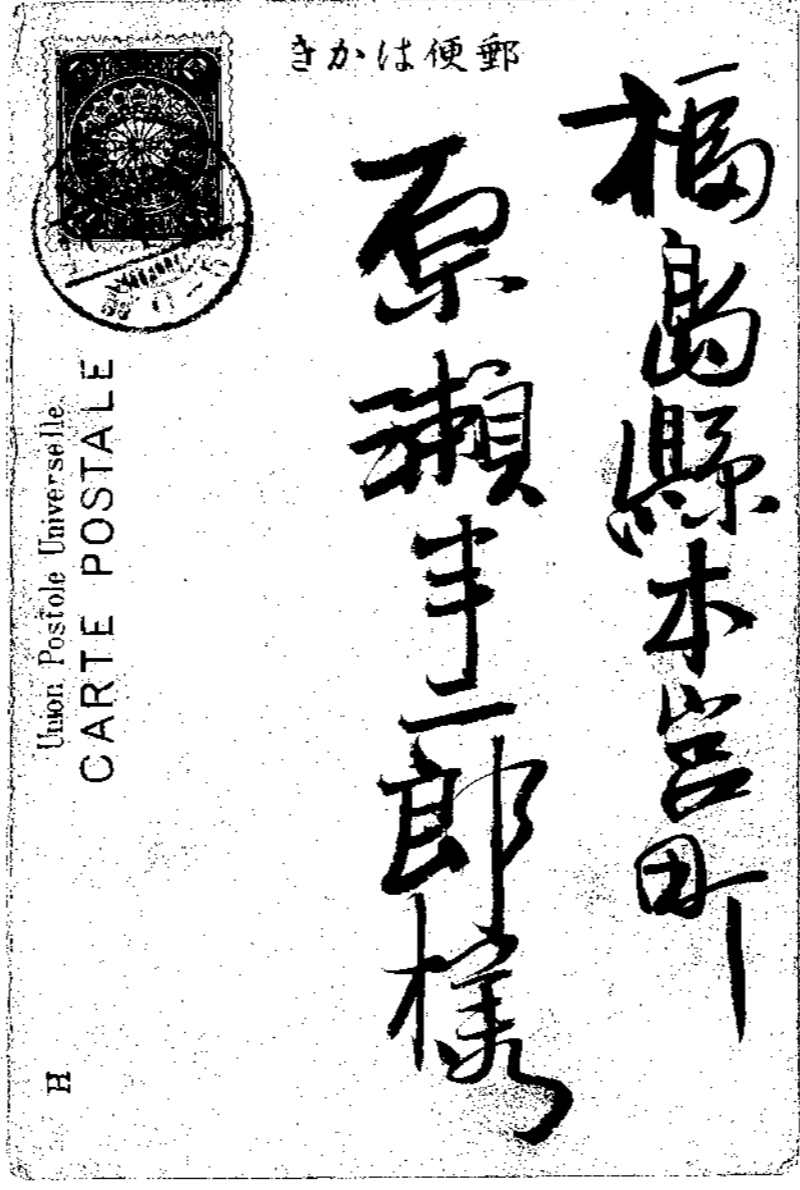 郵便はかき
福島縣本宮町
原瀬半二郎様
Union Postole Universelle.
CARTE POSTALE
H